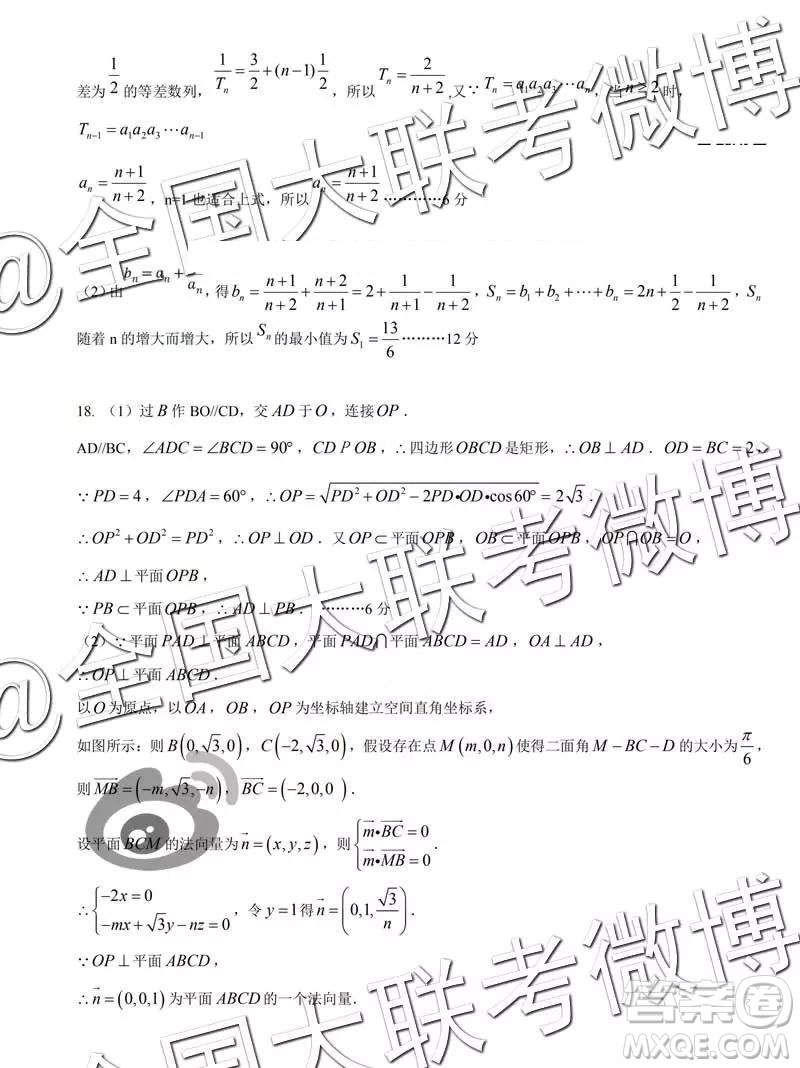 差为 1/2 的等差数列，1/Tₙ = 3/2 + (n−1) 1/2，所以 Tₙ = 2/(n+2)，又∵ Tₙ = a₁a₂a₃⋯aₙ，当 n ≥ 2 时，
Tₙ₋₁ = a₁a₂a₃⋯aₙ₋₁
aₙ = (n+1)/(n+2)，n=1 也适合上式，所以 aₙ = (n+1)/(n+2) …………6 分
（2）由 bₙ = aₙ + /aₙ，得 bₙ = (n+1)/(n+2) + (n+2)/(n+1) = 2 + 1/(n+1) − 1/(n+2)，Sₙ = b₁ + b₂ + ⋯ + bₙ = 2n + 1/2 − 1/(n+2)，Sₙ
随着 n 的增大而增大，所以 Sₙ 的最小值为 S₁ = 13/6 ………12 分
18. （1）过 B 作 BO//CD，交 AD 于 O，连接 OP．
AD//BC，∠ADC = ∠BCD = 90°，CD P OB，∴四边形 OBCD 是矩形，∴OB ⊥ AD．OD = BC = 2，
∵PD = 4，∠PDA = 60°，∴OP = √(PD² + OD² − 2PD•OD•cos60°) = 2√3．
∴OP² + OD² = PD²，∴OP ⊥ OD．又 OP ⊂ 平面 OPB，OB ⊂ 平面 OPB，OP ∩ OB = O，
∴AD ⊥ 平面 OPB，
∵PB ⊂ 平面 OPB，∴AD ⊥ PB． ………6 分
（2）∵平面 PAD ⊥ 平面 ABCD，平面 PAD ∩ 平面 ABCD = AD，OA ⊥ AD，
∴OP ⊥ 平面 ABCD．
以 O 为原点，以 OA，OB，OP 为坐标轴建立空间直角坐标系，
如图所示：则 B(0,√3,0)，C(−2,√3,0)，假设存在点 M(m,0,n) 使得二面角 M − BC − D 的大小为 π/6，
则 MB⃗ = (−m,√3,−n)，BC⃗ = (−2,0,0)．
设平面 BCM 的法向量为 n⃗ = (x,y,z)，则 {m⃗•BC⃗ = 0 m⃗•MB⃗ = 0．
∴{−2x = 0 −mx + √3y − nz = 0，令 y = 1 得 n⃗ = (0,1,√3/n)．
∵OP ⊥ 平面 ABCD，
∴n⃗ = (0,0,1) 为平面 ABCD 的一个法向量．
@全国大联考微博
@全国大联考微博
答案卷
MXQE.COM